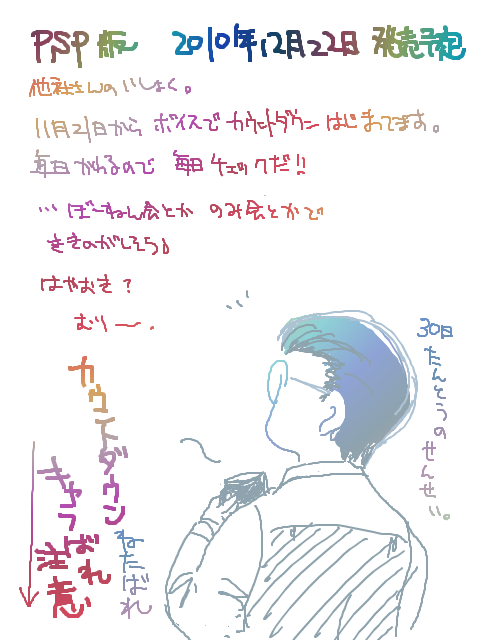 PSP版 2010年12月22日 発売予定
他社さんのいしょく。
11月21日から ボイスで カウントダウン はじまってます。
毎日 がわるので 毎日 チェックだ!!
… ぼーねん会とか のみ会とかで
ききのがしそう♪
はやおき?
むりー.
30日
たんとうの
せんせい。
カウントダウン
キャラばれ
注意
ねたばれ